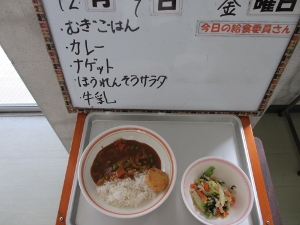 12月 7日 金曜日
今日の給食委員さん
・むぎごはん
・カレー
・ナゲット
・ほうれんそうサラダ
・牛乳